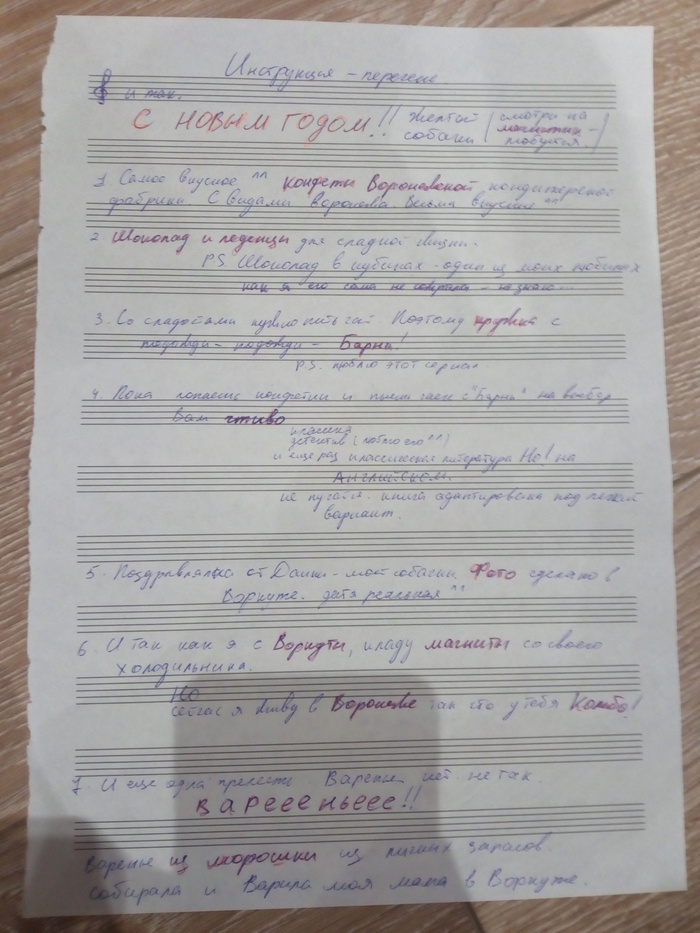 Инструкция -
и так.
С НОВЫМ ГОДОМ!! Желтой собаки (смотри на магнитик - любуйся.)
1 Самое вкусное ^^ конфеты Воронежской кондитерской
фабрики С Видами Воронежа. Весьма вкусные ^^
2 Шоколад и леденцы для сладкой жизни.
PS Шоколад в кубиках - один из моих любимых
как я его сама не сожрала - не знаю...
3. Со сладостями нужно пить чай. Поэтому кружка с
подожди - подожди - Барни!
P.S. люблю этот сериал
4. Пока лопаешь конфетки и пьешь чаек с "Барни" на выбор
Вам чтиво
классика
детектив (люблю его ^^)
и еще раз классическая литература Но! на
Английском.
не пугайся. книга адаптирована под легкий
вариант.
5. Поздравлялка от Даши - моей собачки. Фото сделано в
Воркуте. дата реальная ^^
6. И так как я с Воркуты, кладу магниты со своего
холодильника.
НО
сейчас я живу в Воронеже так что у тебя Комбо!
7. И еще одна прелесть Варенье нет не так.
ВАРЕЕЕНЬЕЕЕ!!
Варенье из морошки из личных запасов.
собирала и Варила моя мама в Воркуте.